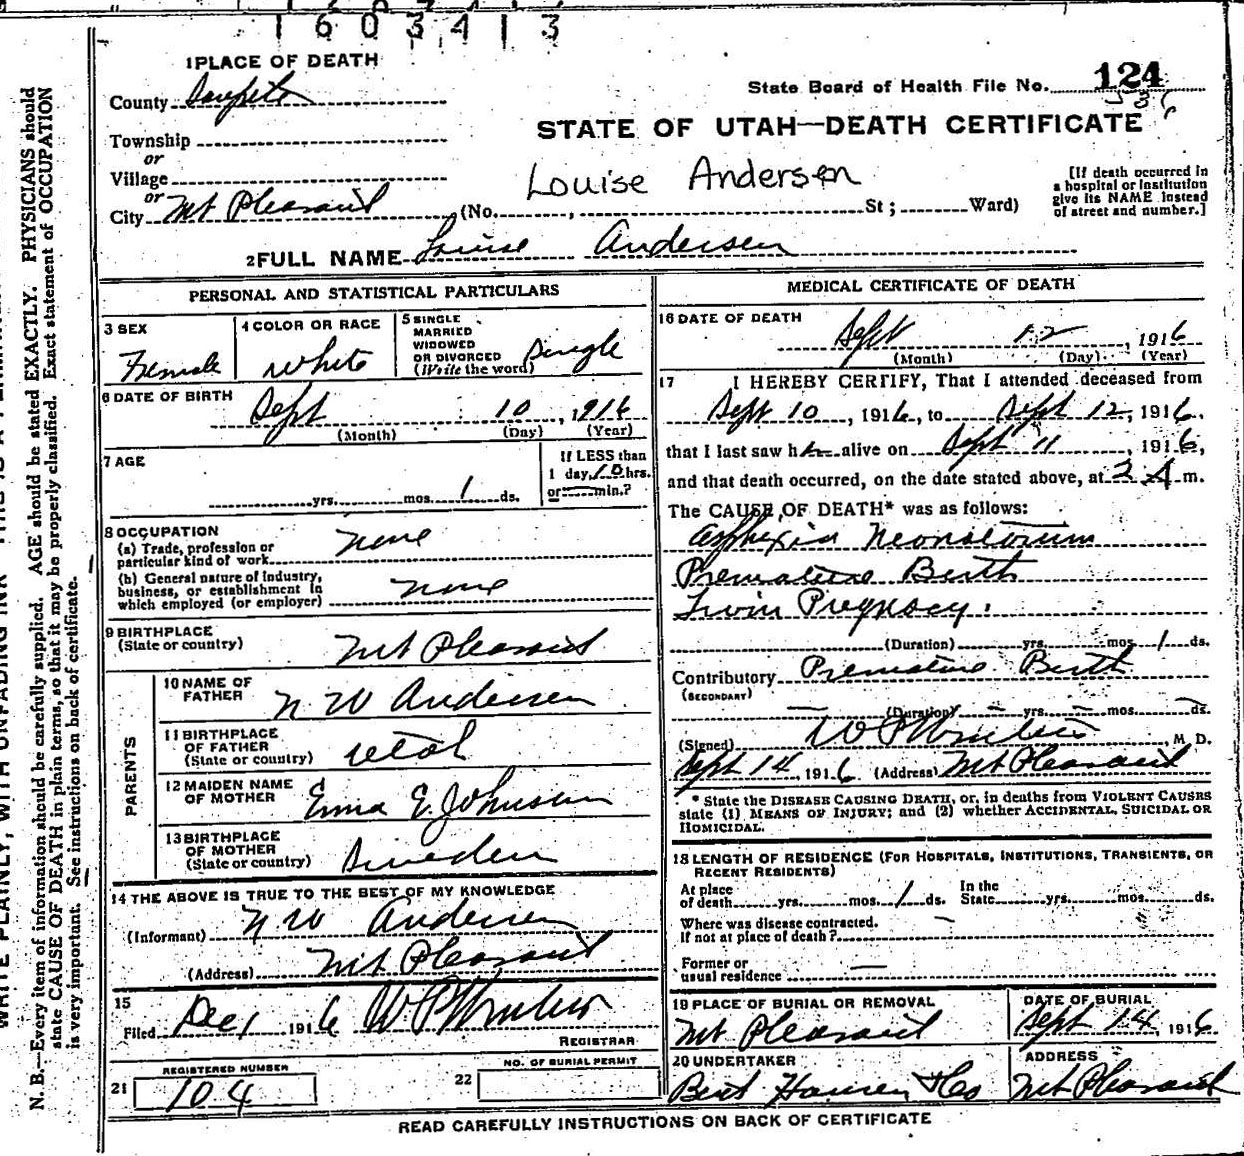 1603413
1 PLACE OF DEATH
County Sanpete
State Board of Health File No. 124
536
STATE OF UTAH—DEATH CERTIFICATE
Township
or
Village
or
City Mt Pleasant (No. , St ; Ward)
Louise Andersen
[If death occurred in
a hospital or institution
give its NAME instead
of street and number.]
2 FULL NAME Louise Andersen
PERSONAL AND STATISTICAL PARTICULARS
3 SEX
Female
4 COLOR OR RACE
White
5 SINGLE
MARRIED
WIDOWED
OR DIVORCED
(Write the word) Single
6 DATE OF BIRTH
Sept 10, 1916
(Month) (Day) (Year)
7 AGE
yrs. mos. 1 ds.
If LESS than
1 day, 10 hrs.
or min.?
8 OCCUPATION
(a) Trade, profession or
particular kind of work none
(b) General nature of industry,
business, or establishment in
which employed (or employer) none
9 BIRTHPLACE
(State or country) Mt Pleasant
PARENTS
10 NAME OF
FATHER N. W Andersen
11 BIRTHPLACE
OF FATHER
(State or country) Utah
12 MAIDEN NAME
OF MOTHER Emma E. Johnson
13 BIRTHPLACE
OF MOTHER
(State or country) Sweden
14 THE ABOVE IS TRUE TO THE BEST OF MY KNOWLEDGE
(Informant) N. W Andersen
(Address) Mt Pleasant
15
Filed Dec 1 1916
REGISTRAR
REGISTERED NUMBER
21 104
NO. OF BURIAL PERMIT
22
MEDICAL CERTIFICATE OF DEATH
16 DATE OF DEATH
Sept 12, 1916
(Month) (Day) (Year)
17 I HEREBY CERTIFY, That I attended deceased from
Sept 10, 1916, to Sept 12, 1916.
that I last saw h alive on Sept 11, 1916,
and that death occurred, on the date stated above, at A m.
The CAUSE OF DEATH* was as follows:
Asphixia Neonatorum
Premature Birth
Twin Pregnacy.
(Duration) yrs. mos. 1 ds.
Contributory Premature Birth
(SECONDARY)
(Duration) yrs. mos. ds.
(Signed) M. D.
Sept 14, 1916 (Address) Mt Pleasant
* State the DISEASE CAUSING DEATH, or, in deaths from VIOLENT CAUSES
state (1) MEANS OF INJURY; and (2) whether ACCIDENTAL, SUICIDAL OR
HOMICIDAL.
18 LENGTH OF RESIDENCE (FOR HOSPITALS, INSTITUTIONS, TRANSIENTS, OR
RECENT RESIDENTS)
At place
of death yrs. mos. 1 ds.
In the
State yrs. mos. ds.
Where was disease contracted.
If not at place of death?
Former or
usual residence —
19 PLACE OF BURIAL OR REMOVAL
Mt Pleasant
DATE OF BURIAL
Sept 14, 1916
20 UNDERTAKER
Bert Hansen & Co
ADDRESS
Mt Pleasant
READ CAREFULLY INSTRUCTIONS ON BACK OF CERTIFICATE
N. B.—Every item of information should be carefully supplied. AGE should be stated EXACTLY. PHYSICIANS should
state CAUSE OF DEATH in plain terms, so that it may be properly classified. Exact statement of OCCUPATION
is very important. See instructions on back of certificate.